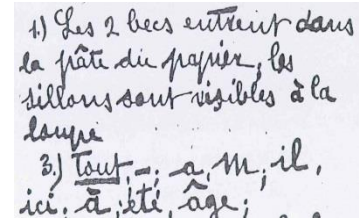 1.) Les 2 becs entrent dans
la pâte du papier, les
sillons sont visibles à la
loupe
3.) tout, -, a, m, il,
ici, à, été, âge;